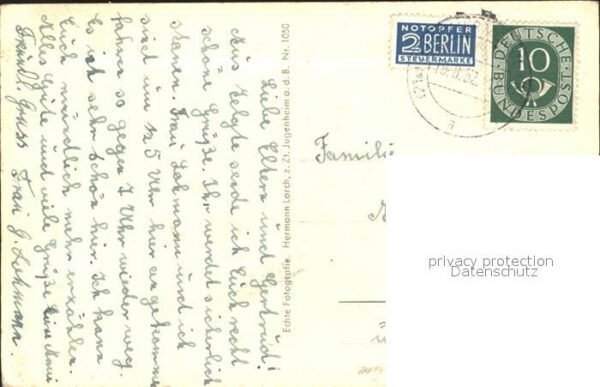 Liebe Eltern und Gertrud!
Aus Telgte sende ich Euch recht
schöne Grüße. Ihr werdet sicherlich
staunen. Frau Lehmann und ich
sind um 1/2 5 Uhr hier angekommen
fahren so gegen 7 Uhr wieder weg.
Es ist sehr schön hier. Ich kann
Euch mündlich mehr erzählen.
Alles Gute und viele Grüße Eure
Freundl. Gruss Frau G. Lehmann.
Echte Fotografie. Hermann Lorch, z. Zt. Jugenheim a. d. B. Nr. 1050
NOTOPFER
2 BERLIN
STEUERMARKE
DEUTSCHE
10
BUNDESPOST
Famili
privacy protection
Datenschutz